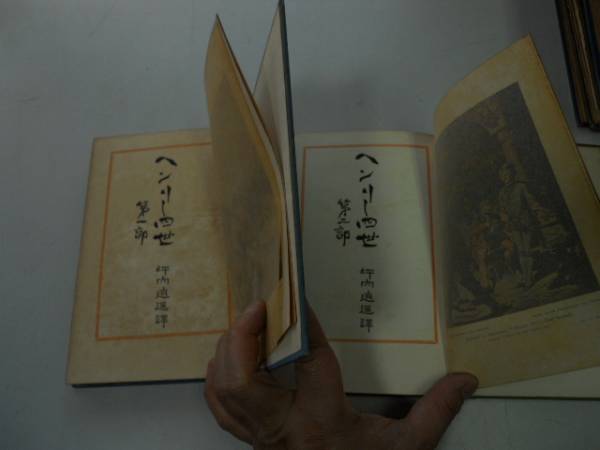 ヘンリー四世
第一部
坪内逍遥譯
ヘンリー四世
第二部
坪内逍遥譯